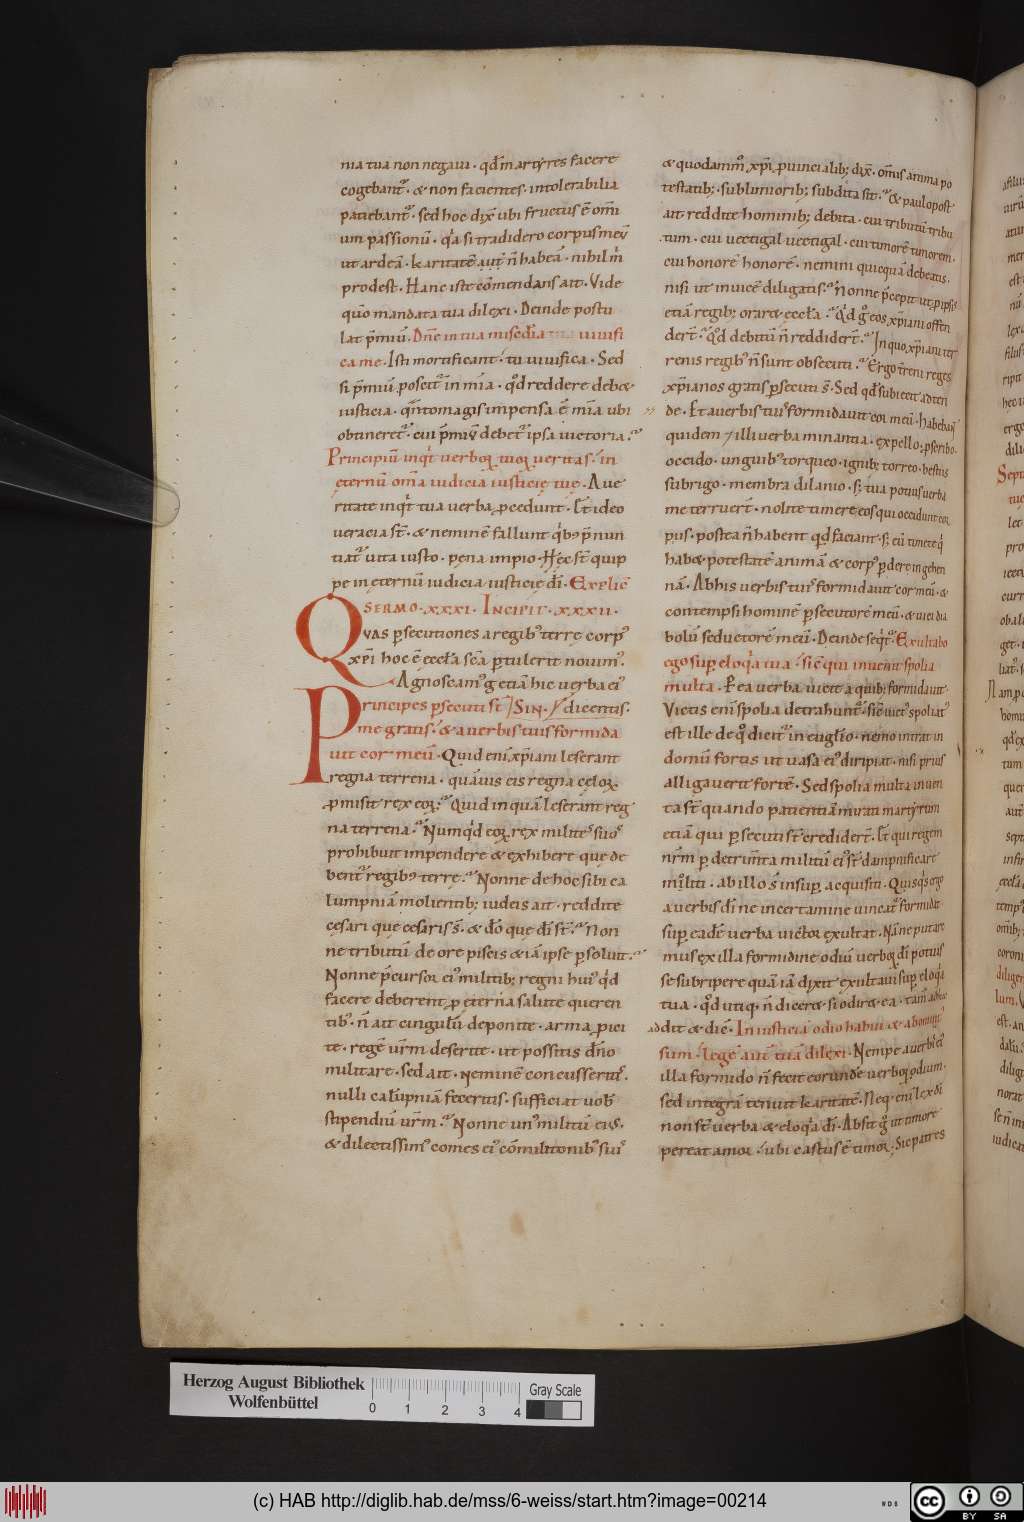 nia tua non negaui · qđ martyres facere
cogebant᷒ · & non facientes · intolerabilia
patiebant᷒ · sed hoc dix̄ ubi fructus ē om̄i
um passionū · q̇a si tradidero corpus meū
ut ardeā · karitatē aut̄ n̄ habeā · nihil m̄
prodest · Hanc iste cōmendans ait · Vide
qm̄o mandata tua dilexi · Deinde postu
lat p̄miū · Dn̄e in tua misedīa uiuifi
ca me · Isti mortificant · tu uiuifica · Sed
si p̄miū poscit᷒ in mīa · qđ reddere deb&
iusticia · qn̄to magis impensa ē mīa ubi
obtineret᷒ · cui p̄miū debet᷒ ipsa uictoria ·
Principiū inq̇t uerboꝝ tuoꝝ ueritas · in
ęternū om̄a iudicia iusticię tuę · A ue
ritate inq̇t tua uerba ꝓcedunt · Et ideo
ueracia st̄ · & neminē fallunt q̇b; p̄nun
tiat᷒ uita iusto · pęna impio · Hęc st̄ quip
pe in ęternū iudicia iusticię dī · Explic̄
SERMO · XXXI · INCIPIT · XXXII ·
QVAS ꝑsecutiones a regib᷒ terrę corp᷒
xp̄i hoc ē ęccła sc̄a ꝑtulerit nouim᷒ ·
Agnoscam᷒ g̊ etiā hic uerba ei᷒
Principes ꝑsecuti st̄ SIN · dicentis ·
me gratis · & a uerbis tuis formida
uit cor meū · Quid eni xp̄iani leserant
regna terrena · quāuis eis regna cęloꝝ
ꝓmisit rex eoꝝ · Quid inquā leserant reg
na terrena · Numq̇d eoꝝ rex milites suos
prohibuit impendere & exhibere que de
bent᷒ regib᷒ terrę · Nonne de hoc sibi ca
lumpniā molientib; iudeis ait · reddite
cesari que cesaris s̄ · & dō que dī st̄ · Non
ne tributū de ore piscis & iā ipse ꝑsoluit ·
Nonne p̄cursoꝝ ei᷒ militib; regni hui᷒ q̇d
facere deberent ꝓ ęterna salute queren
tib᷒ · n̄ ait cingulū deponite · arma ꝓiici
te · regē ur̄m deserite · ut possitis dn̄o
militare · sed ait · Neminē concusserit᷒ ·
nulli calūpniā feceritis · sufficiat uob̄
stipendiū ur̄m · Nonne un᷒ militū ei᷒ ·
& dilectissim᷒ comes ei᷒ cōmilitonib᷒ suis
& quodammō xp̄i ꝓuincialib; dix̄ · om̄is anima po
testatib; sublimiorib; subdita sit · & paulo post
ait reddite hominib; debita · cui tributū tribu
tum · cui uectigal uectigal · cui timorē timorem ·
cui honorē honorē · nemini quicquā debeatis ·
nisi ut inuicē diligatis · Nonne p̄cepit ut ꝓ ipsis
etiā regib; orar& ęccła · Q̇d g̊ eos xp̄iani offen
dert̄ · Qđ debitū n̄ reddidert̄ · In quo xp̄iani ter
renis regib᷒ n̄ sunt obsecuti · Ergo tr̄eni reges
xp̄ianos gratis ꝑsecuti s̄ · Sed qđ subiecit adten
de · Et a uerbis tuis formidauit cor meū · habebant
quidem & illi uerba minantia · expello · ꝓscribo ·
occido · unguib᷒ torqueo · ignib; torreo · bestiis
subrigo · membra dilanio · s; tua potius uerba
me terruert̄ · nolite timere eos qui occidunt cor
pus · postea n̄ habent qđ faciant · s; eū timete q̇
hab& potestatē animā & corp᷒ ꝑdere in gehen
nā · Ab his uerbis tuis formidauit cor meū · &
contempsi hominē ꝑsecutorē meū · & uici dia
bolū seductorē meū · Deinde seq̇t᷒ · Exultabo
ego suꝑ eloq̇a tua · sic̄ qui inuenit spolia
multa · P ea uerba uicit a quib; formidauit ·
Victis eni spolia detrahunt᷒ · sic̄ uict᷒ spoliat᷒
est ille de q̊ dicit᷒ in euglīo · nemo intrat in
domū fortis ut uasa ei᷒ diripiat · nisi prius
alligauerit fortē · Sed spolia multa inuen
ta st̄ quando patientiā mirati martyrum
etiā qui ꝑsecuti st̄ credidert̄ · Et qui regem
nr̄m ꝑ detrim̄ta militū ei᷒ st̄ dampnificare
moliti · ab illo s̄ insuꝑ acquisiti · Quisq̇s ergo
a uerbis dī ne in certamine uincat᷒ formidat
suꝑ eadē uerba uictor exultat · Nā ne putare
mus ex illa formidine odiū uerboꝝ dī potius
se subripere quā iā dixit exultaui suꝑ eloq̇a
tua · qđ utiq · n̄ dicer& si odir& ea · tam̄ adhuc
addit & dic̄ · Iniusticiā odio habui & abominat᷒
sum · legē aut̄ tuā dilexi · Nempe a uerbis ei᷒
illa formido n̄ fecit eorundē uerboꝝ odium ·
sed integrā tenuit karitatē · Neq · eni lex dī
non st̄ uerba & eloq̇a dī · Absit g̊ ut timore
pereat amor · ubi castus ē timor · Sic patres
Herzog August Bibliothek
Wolfenbüttel
0 1 2 3 4
Gray Scale
(c) HAB http://diglib.hab.de/mss/6-weiss/start.htm?image=00214
cc BY SA